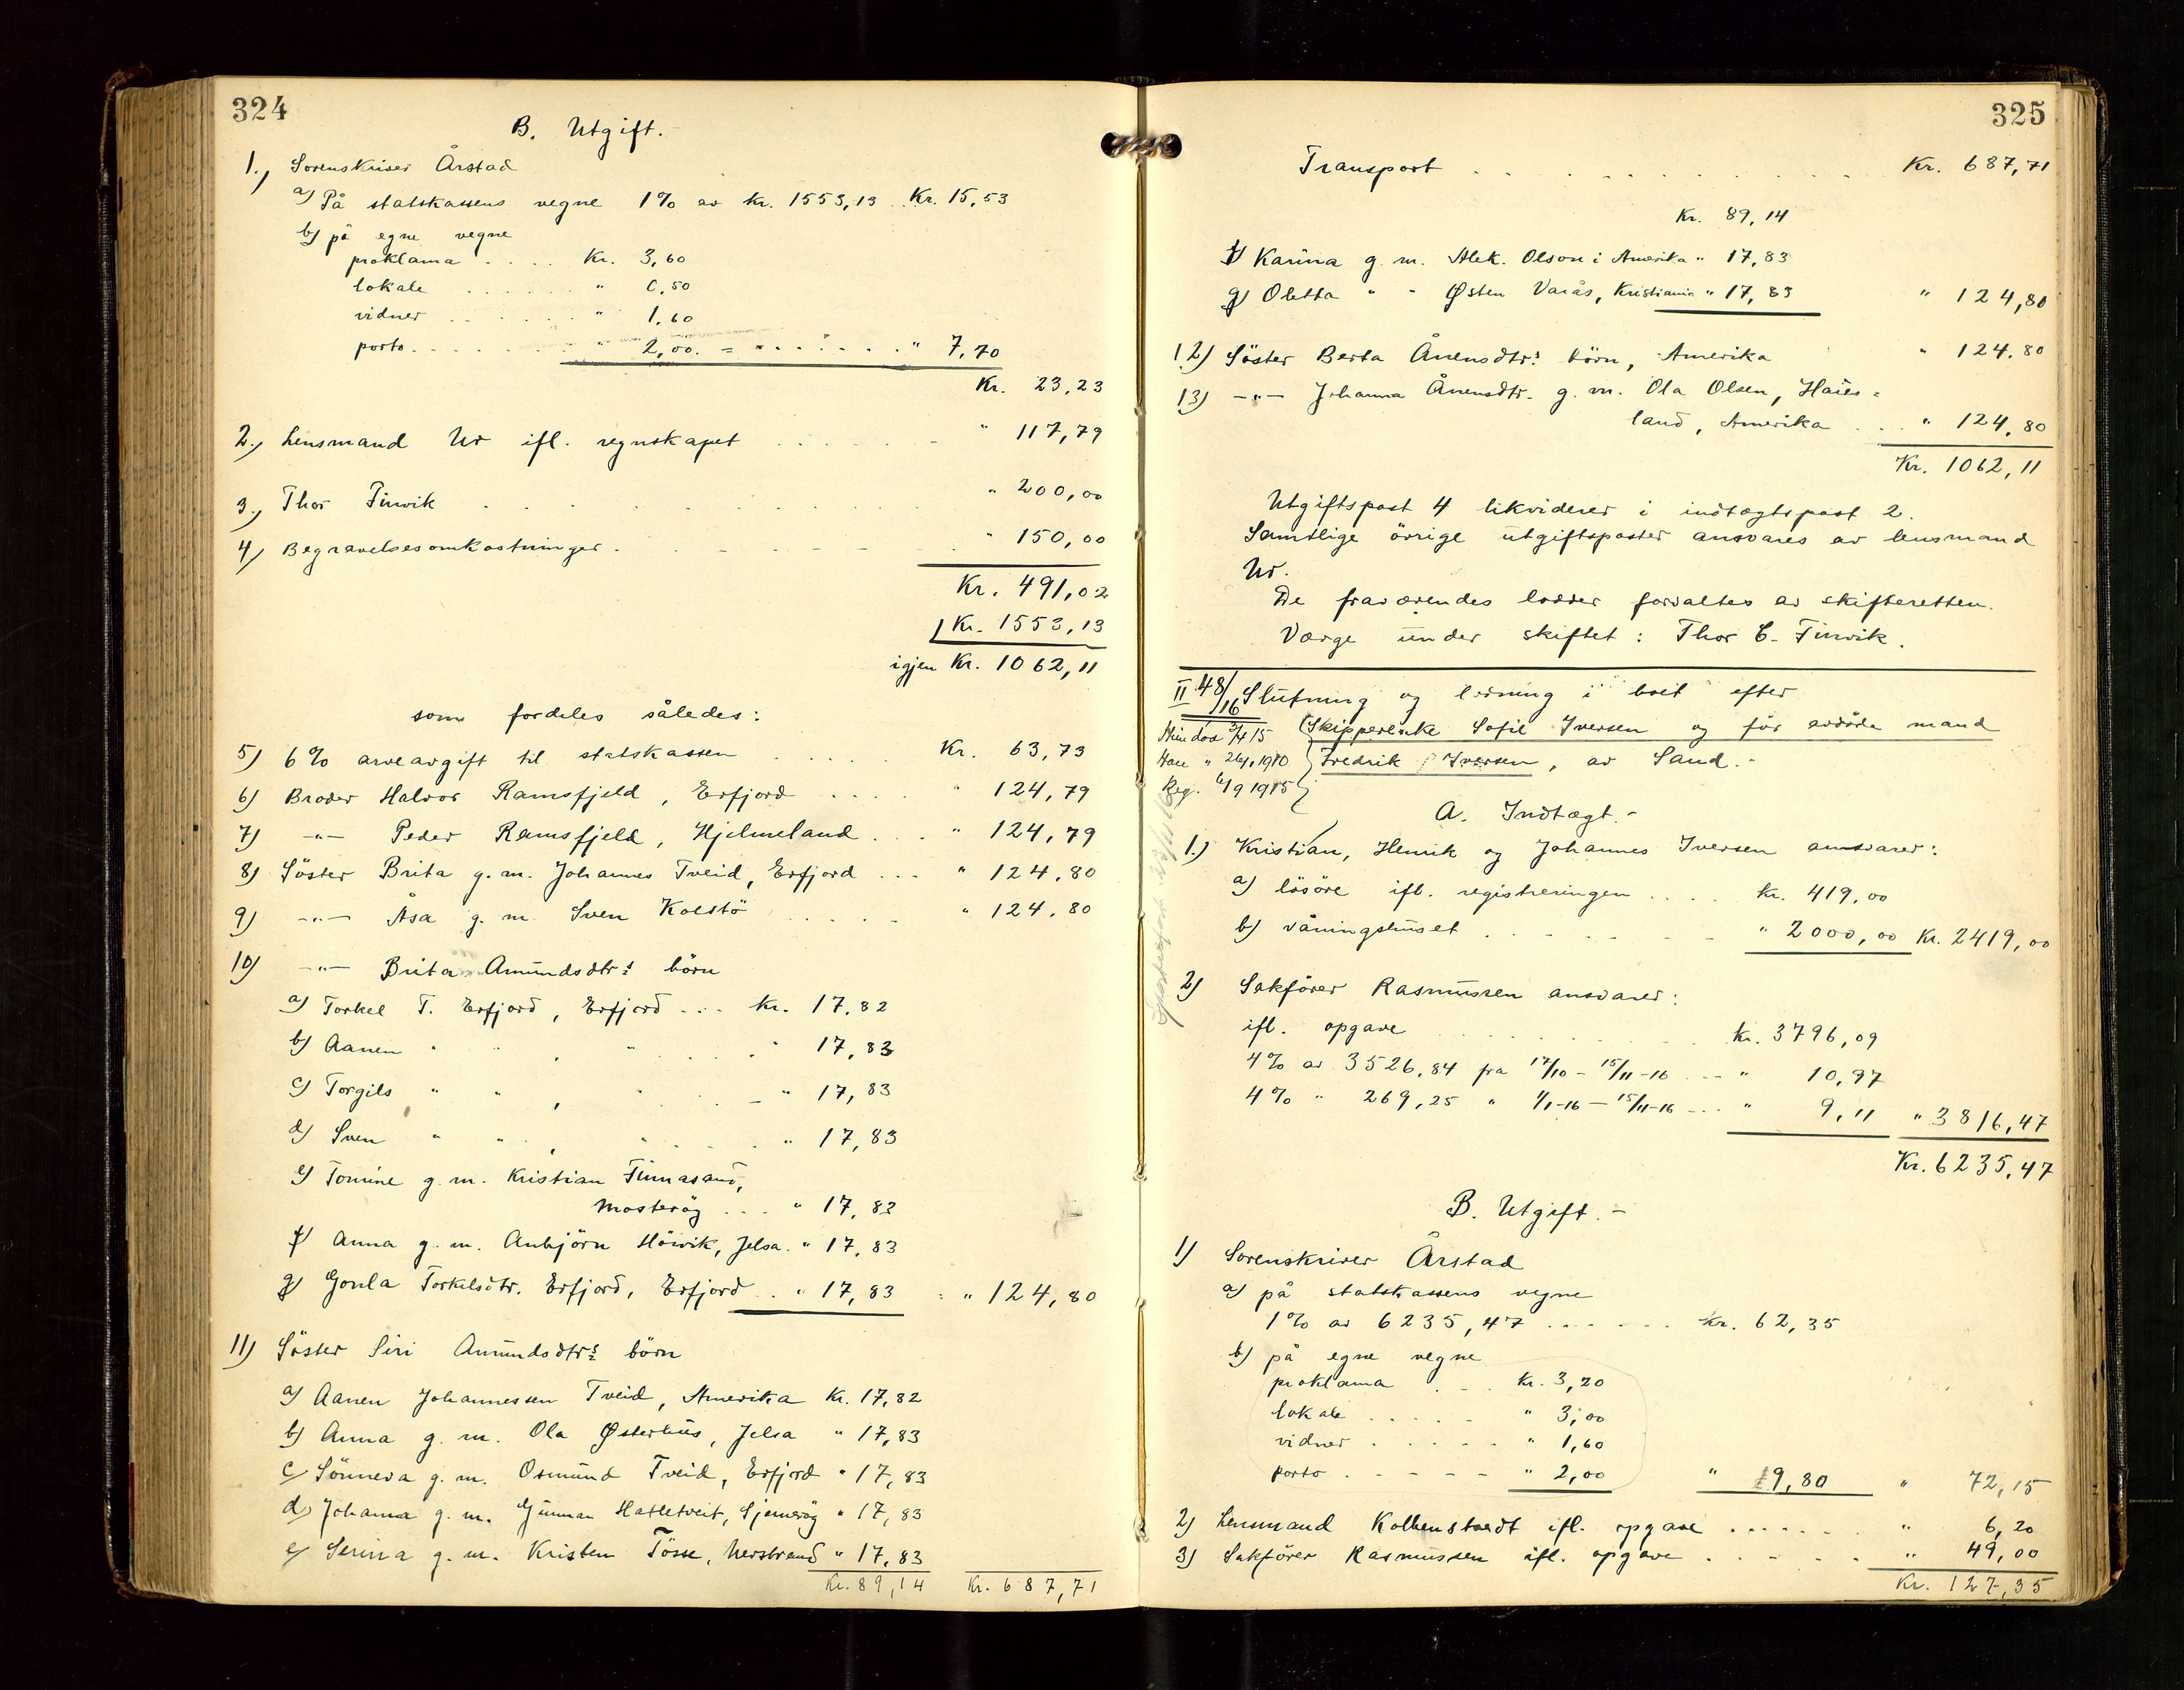 324
B. Utgift.-
1., Sorenskriver Årstad
a) På statskassens vegne 1% av kr. 1553,13 .. Kr. 15,53
b) på egne vegne
proklama . . . . Kr. 3,60
lokale . . . . . . " 0,50
vidner . . . . . . " 1,60
porto . . . . . . " 2,00. = . . . . . . " 7,70
Kr. 23,23
2., Lensmand Ur ifl. regnskapet . . . . . . " 117,79
3., Thor Finvik . . . . . . " 200,00
4) Begravelsesomkostninger . . . . . . " 150,00
Kr. 491,02
Kr. 1553,13
igjen Kr. 1062,11
som fordeles således:
5) 6% arveavgift til statskassen . . . . . Kr. 63,73
6) Broder Halvor Ramsfjeld, Erfjord . . . . " 124,79
7) -"- Peder Ramsfjeld, Hjelmeland . . . " 124,79
8) Söster Brita g. m. Johannes Tveid, Erfjord . . . " 124,80
9) -"- Åsa g. m. Sven Kolstö . . . . . " 124,80
10) -"- Brita Amundsdtrs börn
a) Torkel T. Erfjord, Erfjord . . . Kr. 17,82
b) Aanen " " , " . . . . " 17,83
c) Torgils " " , " . . - " 17,83
d) Sven " " , " . . . . " 17,83
e) Tomine g. m. Kristian Finnasand,
Mosteröy . . . " 17,82
f) Anna g. m. Anbjörn Hövik, Jelsa . " 17,83
g) Gonla Torkelsdtr. Erfjord, Erfjord . . " 17,83 = " 124,80
11) Söster Siri Amundsdtrs börn
a) Aanen Johannessen Tveid, Amerika Kr. 17,82
b) Anna g. m. Ola Østerhus, Jelsa " 17,83
c) Sönneva g. m. Osmund Tveid, Erfjord " 17,83
d) Johanna g. m. Gunnar Hatletveit, Sjerneröy " 17,83
e) Serina g. m. Kristen Tösse, Nerstrand " 17,83
Kr. 89,14 Kr. 687,71
325
Transport . . . . . . . . . . Kr. 687,71
Kr. 89,14
f) Karina g. m. Alek. Olson i Amerika " 17,83
g) Oletta " " Østen Varås, Kristiania " 17,83 " 124,80
12) Söster Berta Ånensdtrs börn, Amerika " 124,80
13) -"- Johanna Ånensdtr. g. m. Ola Olsen, Haies=
land, Amerika . . . " 124,80
Kr. 1062,11
Utgiftspost 4 likviderer i indtægtspost 2.
Samtlige övrige utgiftsposter ansvares av lensmand
Ur.
De fraværendes lodder forvaltes av skifteretten.
Værge under skiftet: Thor C. Finvik.
II 48/16 Slutning og lodning i boet efter
Skipperenke Sofie Iversen og för avdöde mand
Fredrik Iversen, av Sand.-
A. Indtægt.-
1.) Kristian, Henrik og Johannes Iversen ansvarer:
a) lösöre ifl. registreringen . . . . Kr. 419,00
b) våningshuset . . . . . " 2000,00 Kr. 2419,00
2) Sakförer Rasmussen ansvarer:
ifl. opgave . . . . . . Kr. 3796,09
4% av 3526,84 fra 17/10 - 15/11-16 . . . " 10,97
4% " 269,25 " 1/1-16 - 15/11-16 . . . " 9,11 " 3816,47
Kr. 6235,47
B. Utgift.-
1) Sorenskriver Årstad
a) på statskassens vegne
1% av 6235,47 . . . . . . Kr. 62,35
b) på egne vegne
proklama . . . Kr. 3,20
lokale . . . . . " 3,00
vidner . . . . . " 1,60
porto . - - - - " 2,00 " 9,80 " 72,15
2) Lensmand Kolbenstvedt ifl. opgave . . . . . . " 6,20
3) Sakförer Rasmussen ifl. opgave . . . . . " 49,00
Kr. 127,35